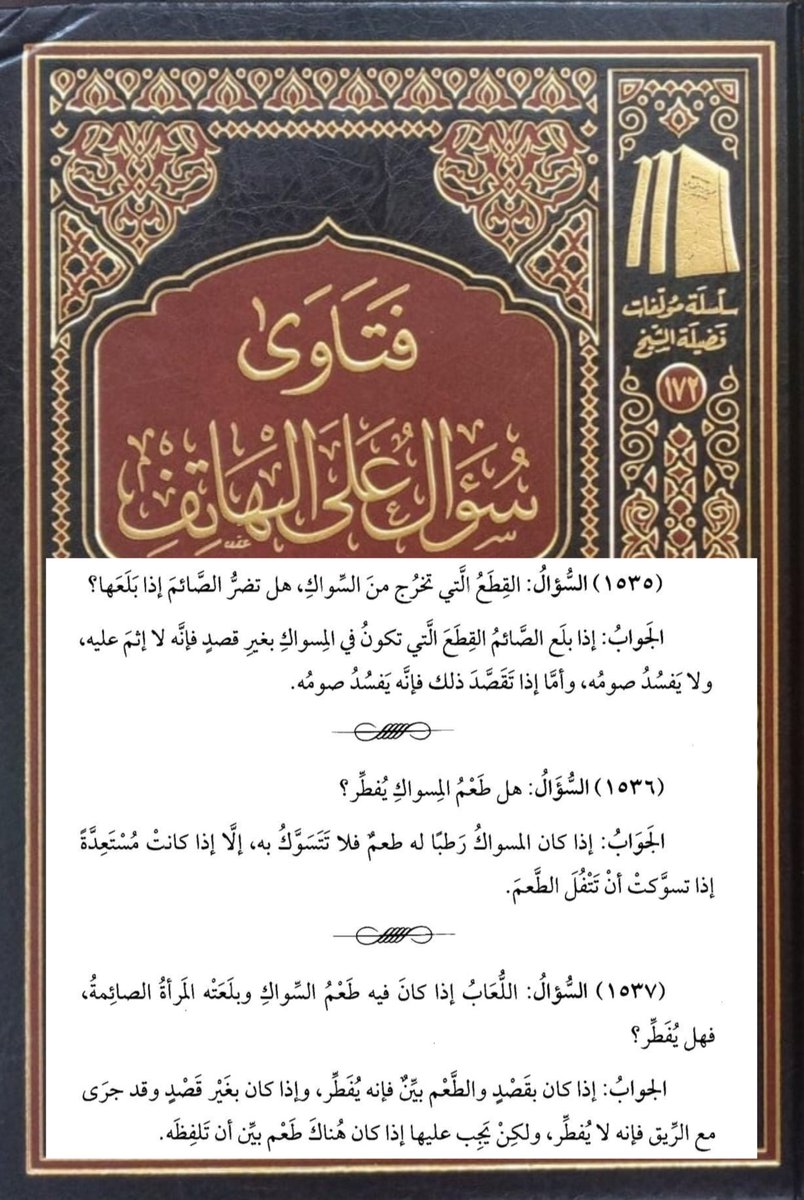 سلسلة مؤلفات
فضيلة الشيخ
١٧٢
فَتَاوَى
سُؤَال عَلَى الهَاتِفِ
(١٥٣٥) السُّؤالُ: القِطَعُ الَّتي تخرُج منَ السِّواكِ، هل تضرُّ الصَّائمَ إذا بَلَعَها؟
الجَوابُ: إذا بلَع الصَّائمُ القِطَعَ الَّتي تكونُ في المِسواكِ بغيرِ قصدٍ فإنَّه لا إثمَ عليه،
ولا يَفسُدُ صومُه، وأمَّا إذا تَقَصَّدَ ذلك فإنَّه يَفسُدُ صومُه.
(١٥٣٦) السُّؤَالُ: هل طَعْمُ المِسواكِ يُفطِّر؟
الجَوَابُ: إذا كان المسواكُ رَطبًا له طعمٌ فلا تَتَسَوَّكُ به، إلَّا إذا كانتْ مُسْتَعِدَّةً
إذا تسوَّكتْ أنْ تَتْفُلَ الطَّعمَ.
(١٥٣٧) السُّؤالُ: اللُّعَابُ إذا كانَ فيه طَعْمُ السِّواكِ وبلَعَتْه المَرأةُ الصائِمةُ،
فهل يُفَطِّر؟
الجوابُ: إذا كان بقَصْدٍ والطَّعْم بيِّنٌ فإنه يُفَطِّر، وإذا كان بغَيْر قَصْدٍ وقد جرَى
مع الرِّيق فإنه لا يُفطِّر، ولكِنْ يَجِب عليها إذا كان هُناكَ طَعْم بيِّن أن تَلفِظَه.